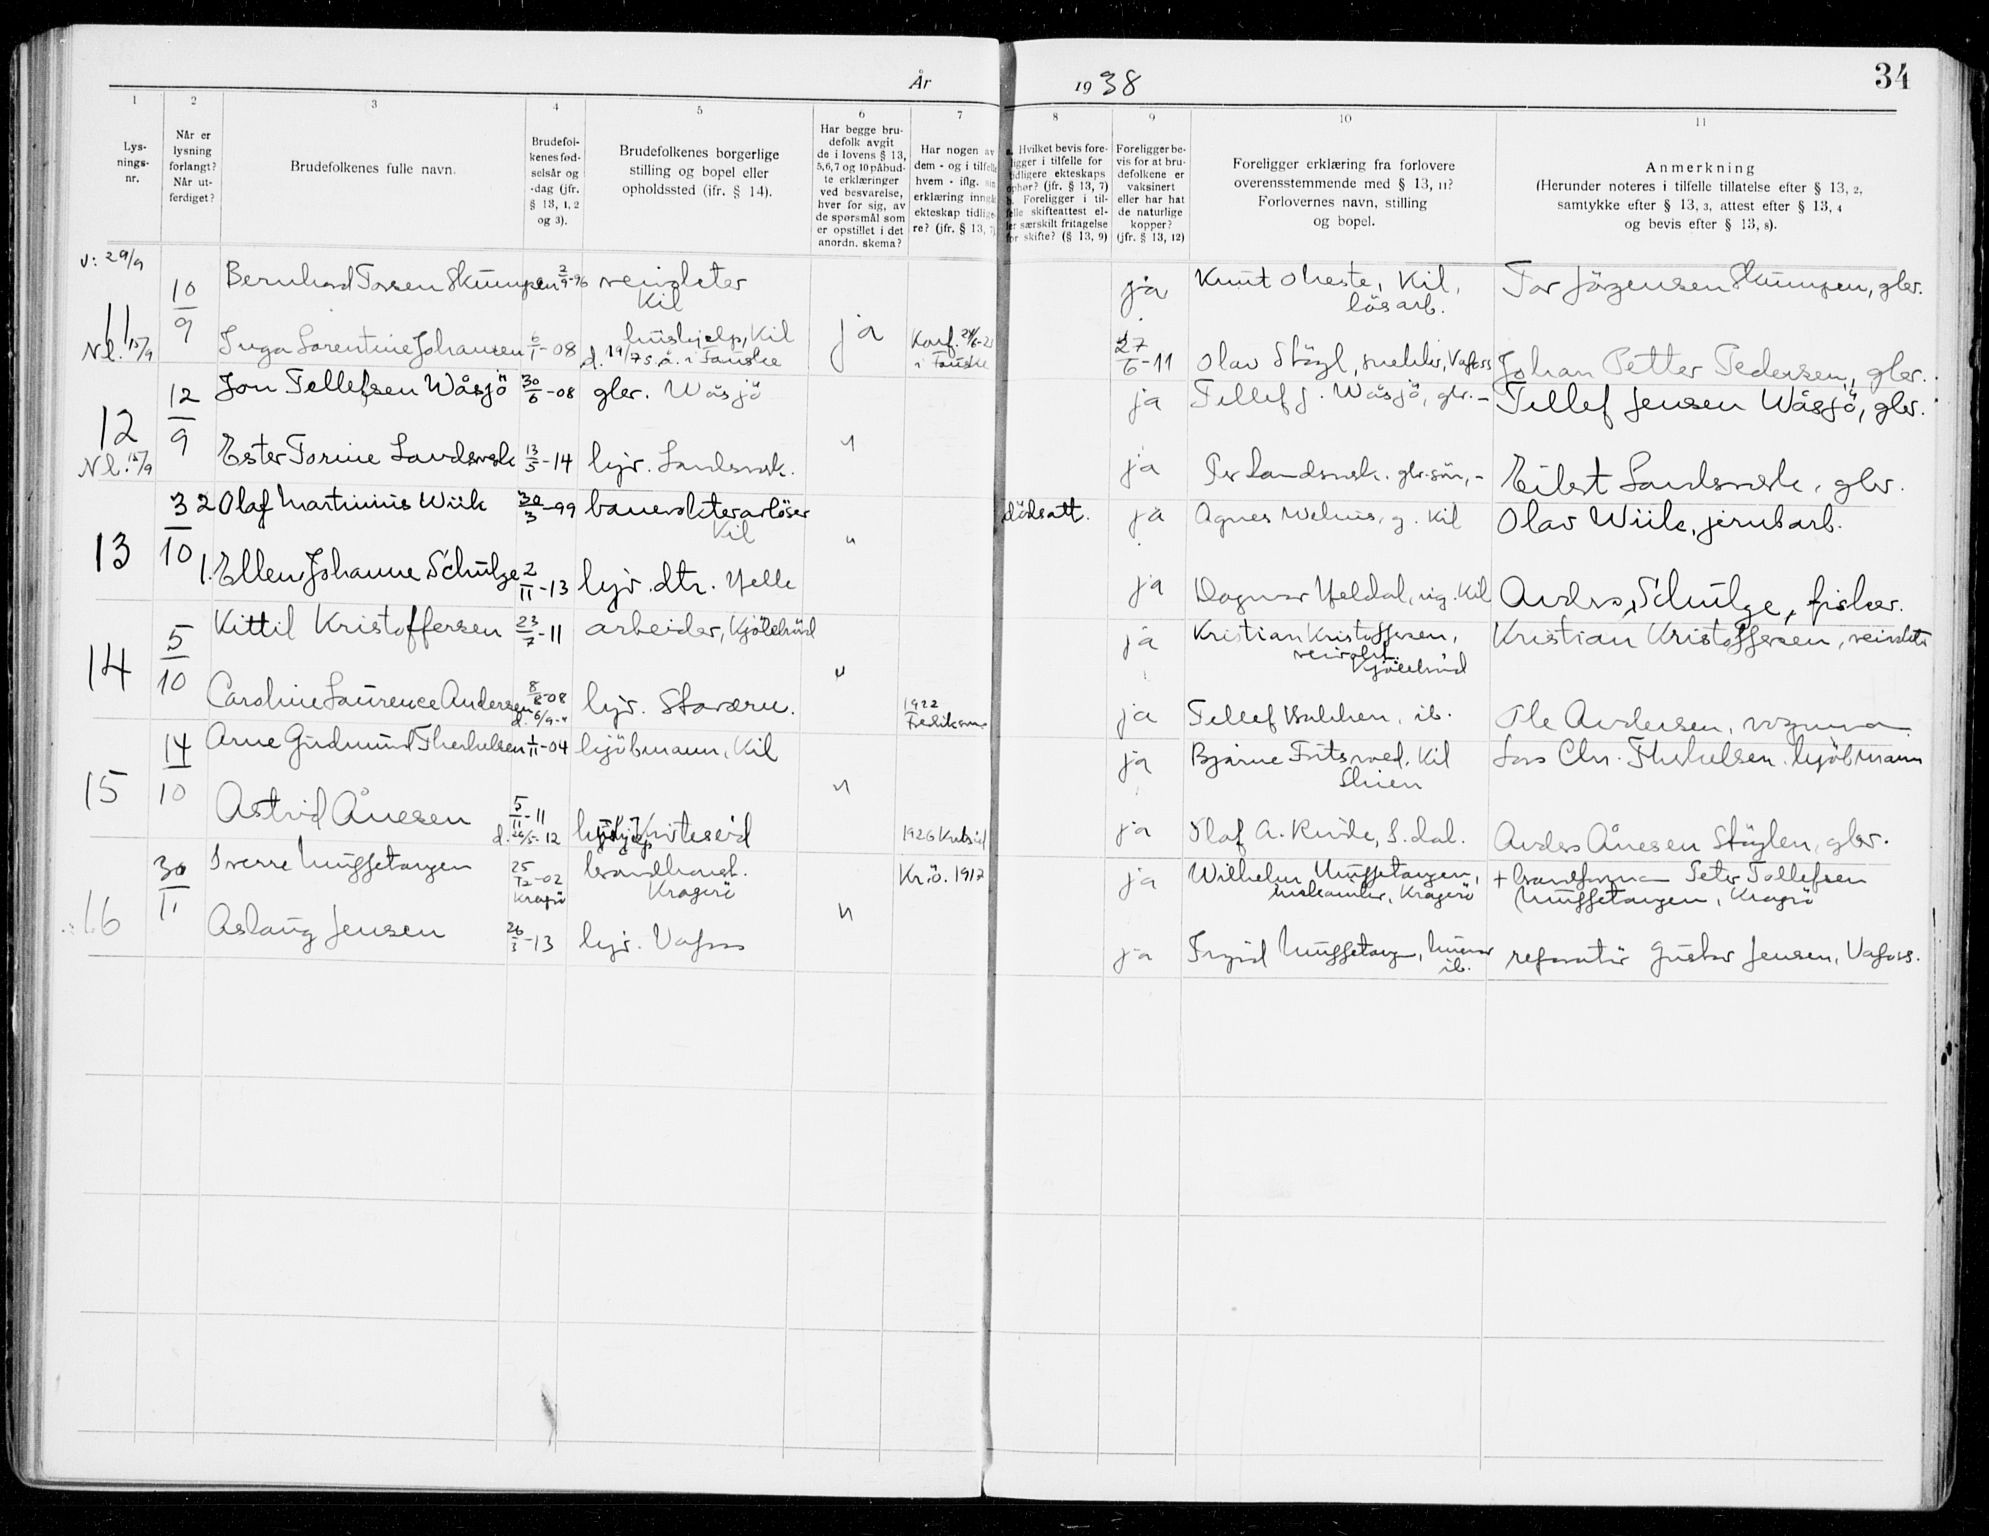 År 1938
34
1 2 3 4 5 6 7 8 9 10 11
Lys-
nings-
nr.
Når er
lysning
forlangt?
Når ut-
ferdiget?
Brudefolkenes fulle navn.
Brudefol-
kenes fød-
selsår og
-dag (jfr.
§ 13, 1, 2
og 3).
Brudefolkenes borgerlige
stilling og bopel eller
opholdssted (jfr. § 14).
Har begge bru-
defolk avgit
de i lovens § 13,
5, 6, 7 og 10 påbud-
te erklæringer
ved besvarelse,
hver for sig, av
de spørsmål som
er opstillet i det
anordn. skema?
Har nogen av
dem - og i tilfelle
hvem - iflg.
erklæring inngått
ekteskap tidlige-
re? (jfr. § 13, 7)
a. Hvilket bevis fore-
ligger i tilfelle for
tidligere ekteskaps
ophør? (jfr. § 13, 7)
b. Foreligger i til-
felle skifteattest el-
ler særskilt fritagelse
for skifte? (§ 13, 9)
Foreligger be-
vis for at bru-
defolkene er
vaksinert
eller har hat
de naturlige
kopper?
(jfr. § 13, 12)
Foreligger erklæring fra forlovere
overensstemmende med § 13, 11?
Forlovernes navn, stilling
og bopel.
Anmerkning
(Herunder noteres i tilfelle tillatelse efter § 13, 2,
samtykke efter § 13, 3, attest efter § 13, 4
og bevis efter § 13, 8).
v: 29/9
11 10/9 Bernhard Torsen Skumpen 2/9-96
Kil
ja Knut Oheste, Kil,
løsarb.
Tor Jörgensen Skumpen, gbr.
Nl. 15/9
Inga Lorentine Johansen 6/1-08 hushjelp, Kil
d. 19/7 s.å. i Fauske
ja
Konf.
i Fauske
27/6-11 Olav Stögl, snekker, Vafoss
Johan Petter Pedersen, gbr.
12 12/9 Jon Tellefsen Wåsjö 30/6-08 gbr. Wåsjö
ja Tellef J. Wåsjö, gbr. -
Tellef Jensen Wåsjö, gbr.
Nl. 15/9
Ester Torine Landsverk 13/5-14 hjv. Landsverk. "
ja Per Landsverk. gbr.sön, -
Eilert Landsverk, gbr.
13 3/10 2 Olaf Martinius Wiik 30/3-99 banevokteravlöser
Kil "
dödsatt. ja Agnes Melhus, g. Kil
Olav Wiik, jernbarb.
1. Ellen Johanne Schulze 2/11-13 hjv. dtr. Helle
ja Dagmar Heldal, ug. Kil
Anders Schulze, fisker.
14 5/10 Kittil Kristoffersen 23/7-11 arbeider, Kjölebrönd "
ja Kristian Kristoffersen,
Kjölebrönd
Kristian Kristoffersen,
Caroline Laurence Andersen 8/8-08
d. 6/9-"
hjv. Stavern.
1922
ja Tellef Bakken, ib.
Ole Andersen, vognmann
15 14/10 Arne Gudmund Therkelsen 1/11-04 kjöbmann, Kil "
ja Bjarne Fritsvold. Kil
Skien
Lars Chr. Therkelsen. kjöbmann
Astrid Ånesen 5/11-11
d. 26/5-12
Kviteseid
1926 Kvitseid
ja Olaf A. Rinde, S.dal.
Anders Ånesen Stöylen, gbr.
16 30/11 Sverre Muggetangen 25/12-02
Kragerö
brandkonst.
Kragerö "
Kr.ö. 1917
ja Wilhelm Muggetangen,
Kragerö
+ Peter Tollefsen
Muggetangen, Kragerö
Aslaug Jensen 26/3-13 hjv. Vafoss
ja Muggetangen,
ib.
reparatör Gustav Jensen, Vafoss.